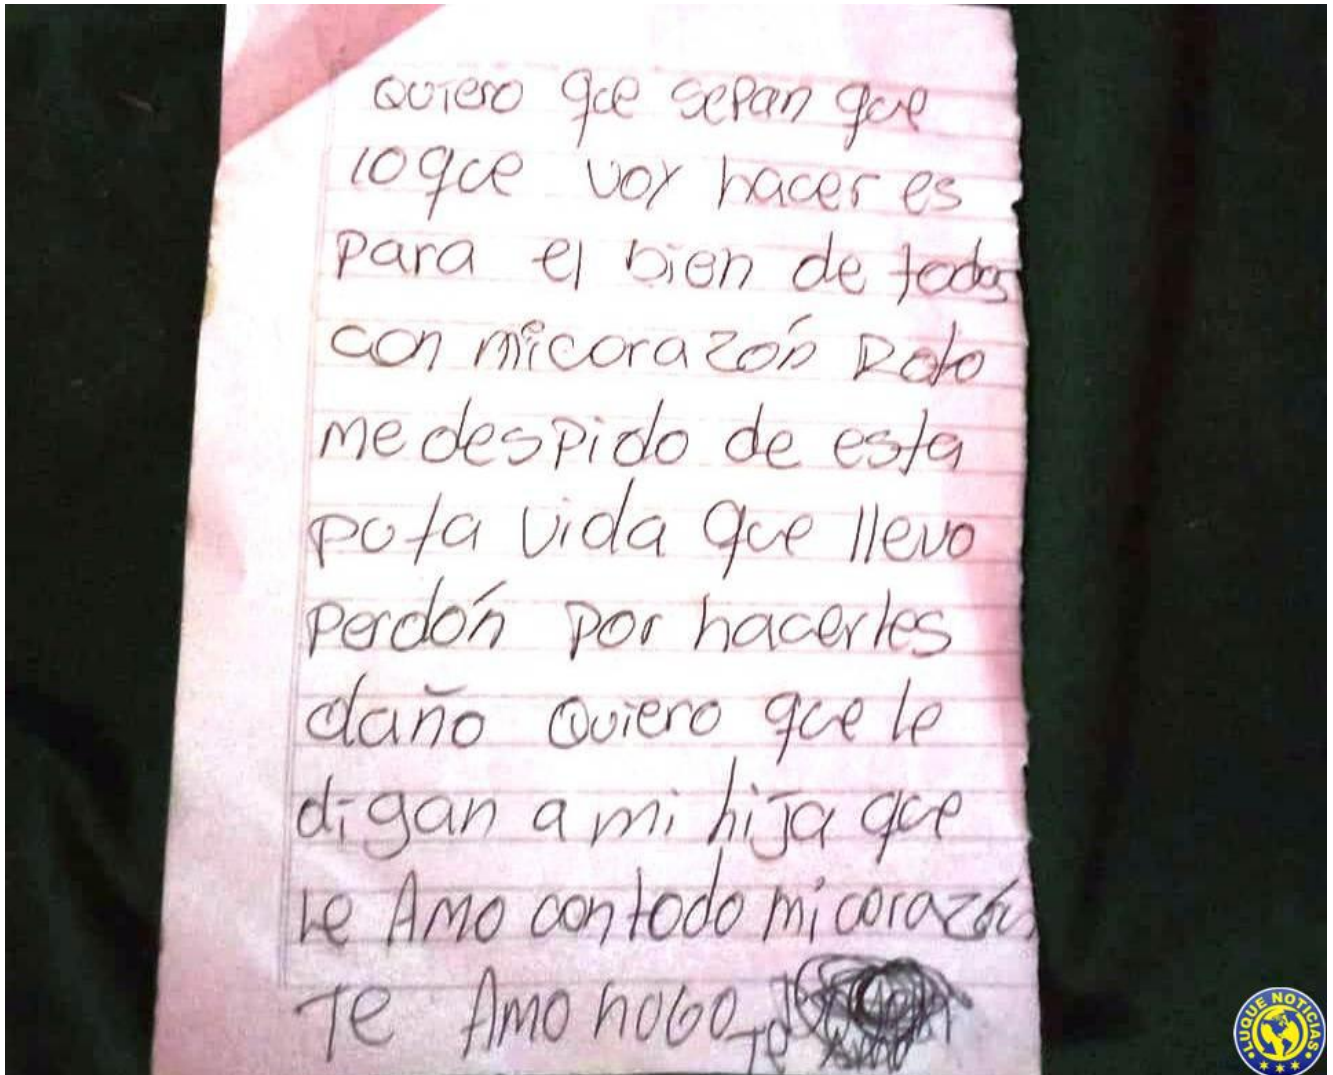 Quiero que sepan que
lo que voy hacer es
para el bien de todos
con mi corazón Roto
me despido de esta
puta vida que llevo
perdón por hacerles
daño Quiero que le
digan a mi hija que
le Amo con todo mi corazón
Te Amo hugo Te
LUQUE NOTICIAS